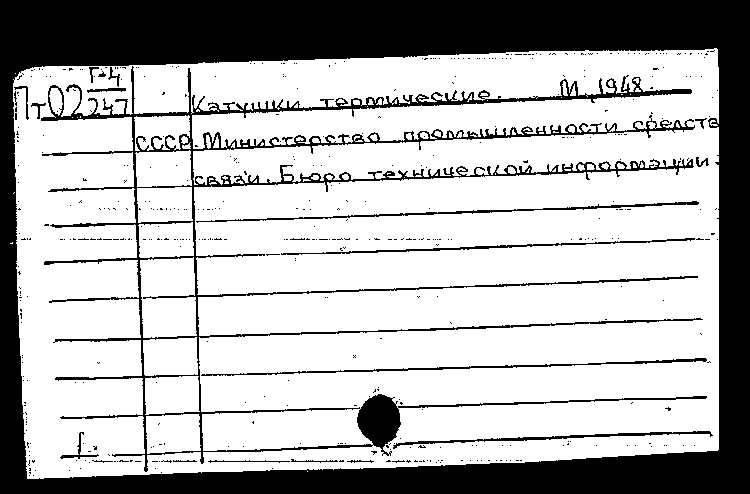 Пт02 Г-4/247
Катушки термические. М, 1948.
СССР. Министерство промышленности средств
связи. Бюро технической информации.